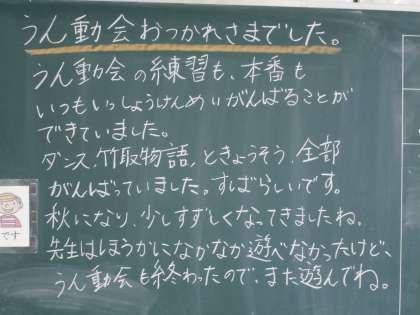 うん動会おつかれさまでした。
うん動会の練習も、本番も
いつもいっしょうけんめいがんばることが
できていました。
ダンス、竹取物語、ときょうそう、全部
がんばっていました。すばらしいです。
秋になり、少しすずしくなってきましたね。
先生はほうかになかなか遊べなかったけど、
うん動会も終わったので、また遊んでね。
です